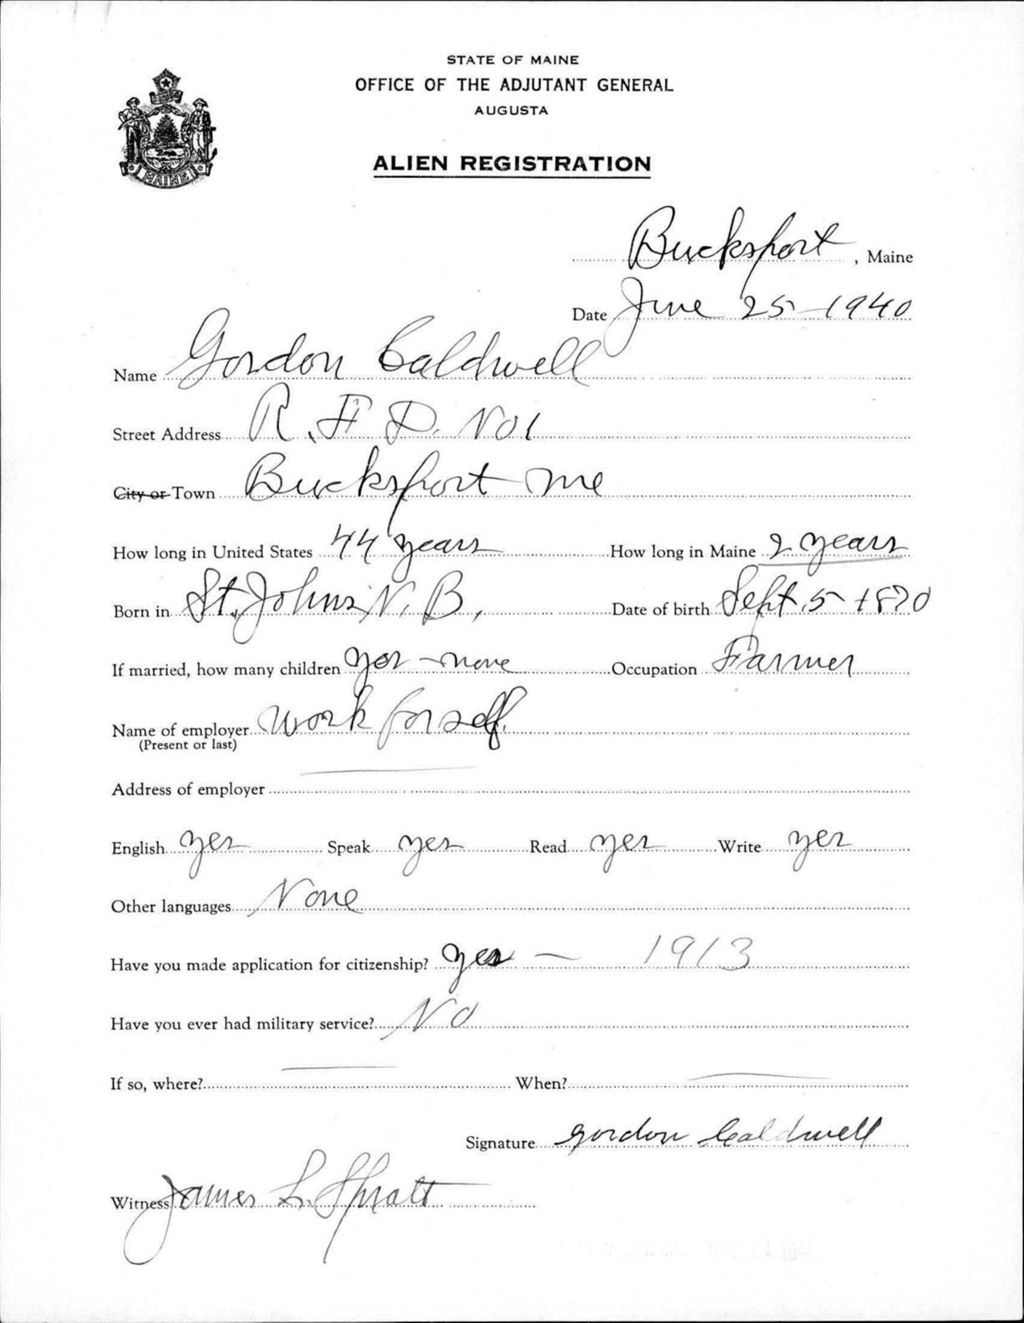 STATE OF MAINE
OFFICE OF THE ADJUTANT GENERAL
AUGUSTA
MAINE
ALIEN REGISTRATION
Bucksport, Maine
Date June 25-1940
Name Gordon Caldwell
Street Address R.F.D. No 1
City or Town Bucksport Me
How long in United States 44 years How long in Maine 2 years
Born in St. Johns N.B. Date of birth Sept. 5-1870
If married, how many children yes - none Occupation Farmer
Name of employer work for self.
(Present or last)
Address of employer
English yes Speak yes Read yes Write yes
Other languages None
Have you made application for citizenship? yes - 1913
Have you ever had military service? No
If so, where? When?
Signature gordon Caldwell
Witness James L. Spratt